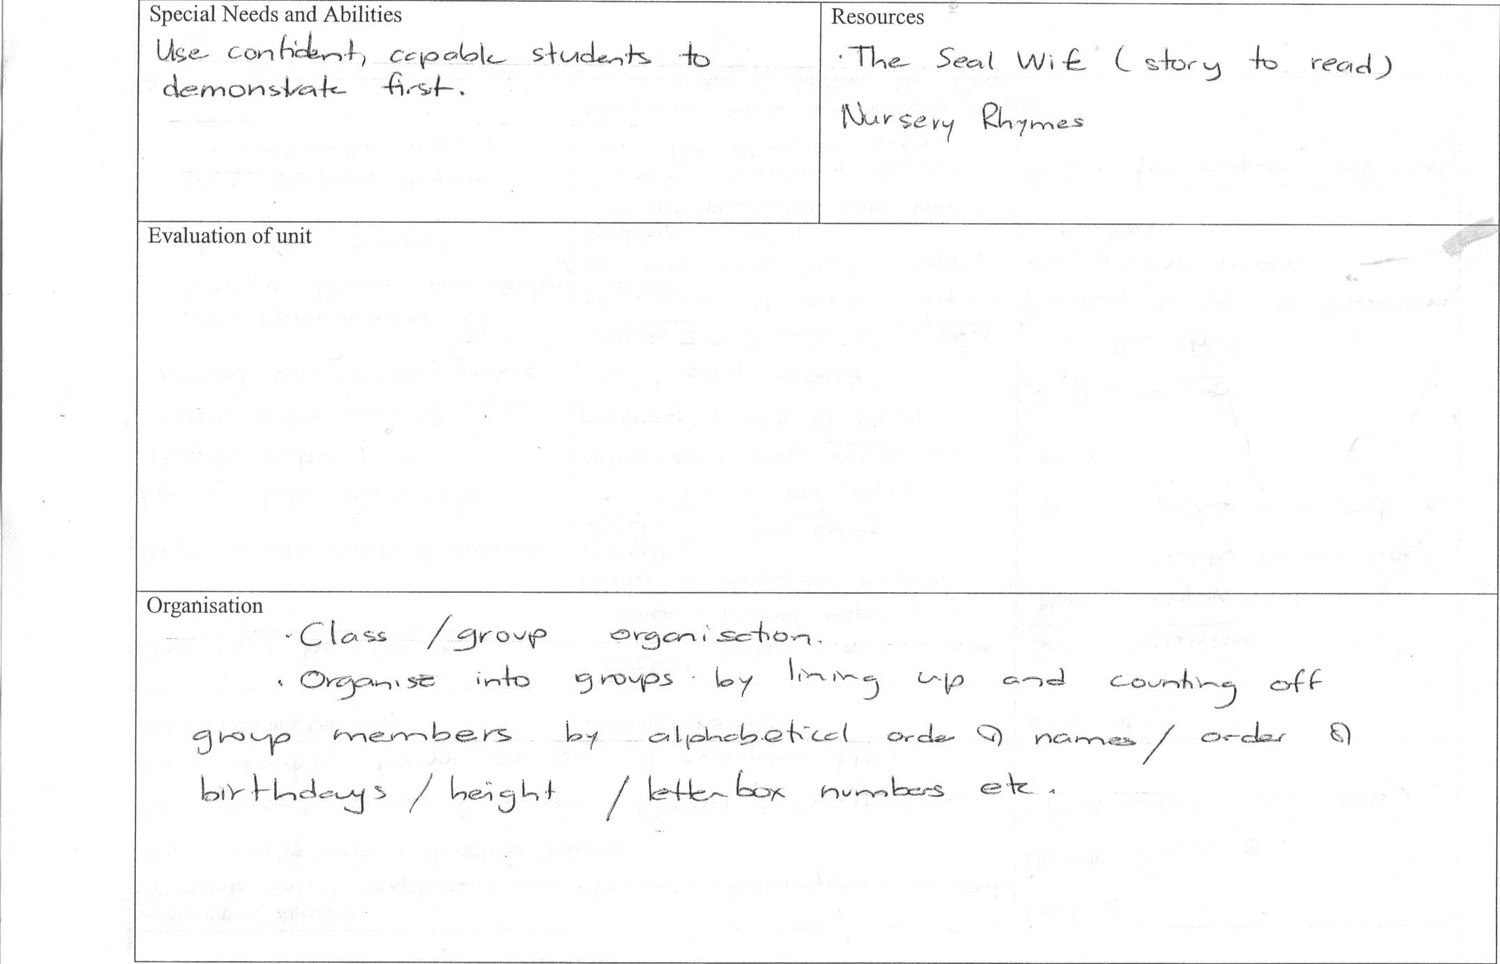 Special Needs and Abilities
Use confident, capable students to
demonstrate first.
Resources
· The Seal Wife (story to read)
Nursery Rhymes
Evaluation of unit
Organisation
· Class / group organisation.
· Organise into groups by lining up and counting off
group members by alphabetical order of names / order of
birthdays / height / letterbox numbers etc.